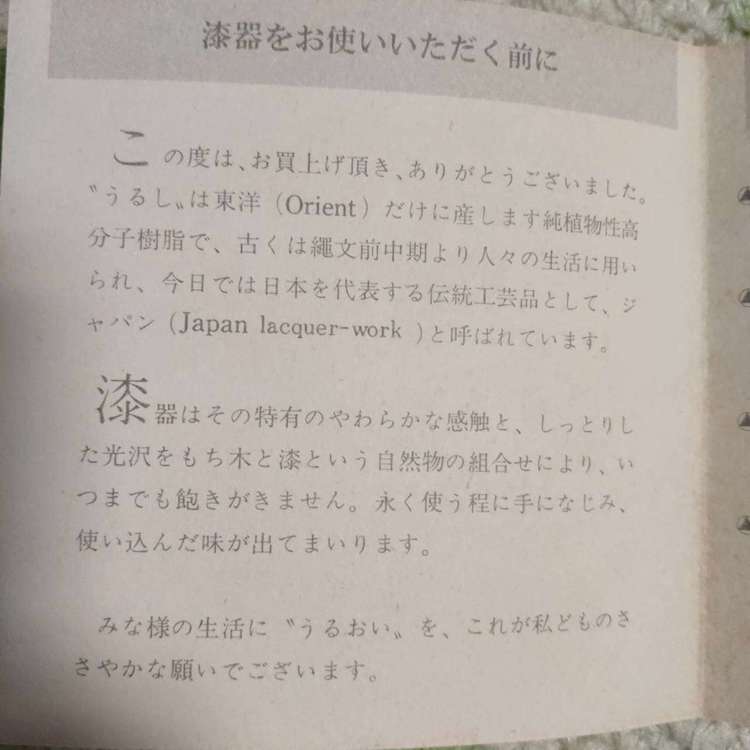 漆器をお使いいただく前に
この度は、お買上げ頂き、ありがとうございました。
〝うるし〟は東洋（Orient）だけに産します純植物性高
分子樹脂で、古くは縄文前中期より人々の生活に用い
られ、今日では日本を代表する伝統工芸品として、ジ
ャパン（Japan lacquer-work ）と呼ばれています。
漆器はその特有のやわらかな感触と、しっとりし
た光沢をもち木と漆という自然物の組合せにより、い
つまでも飽きがきません。永く使う程に手になじみ、
使い込んだ味が出てまいります。
みな様の生活に〝うるおい〟を、これが私どものさ
さやかな願いでございます。